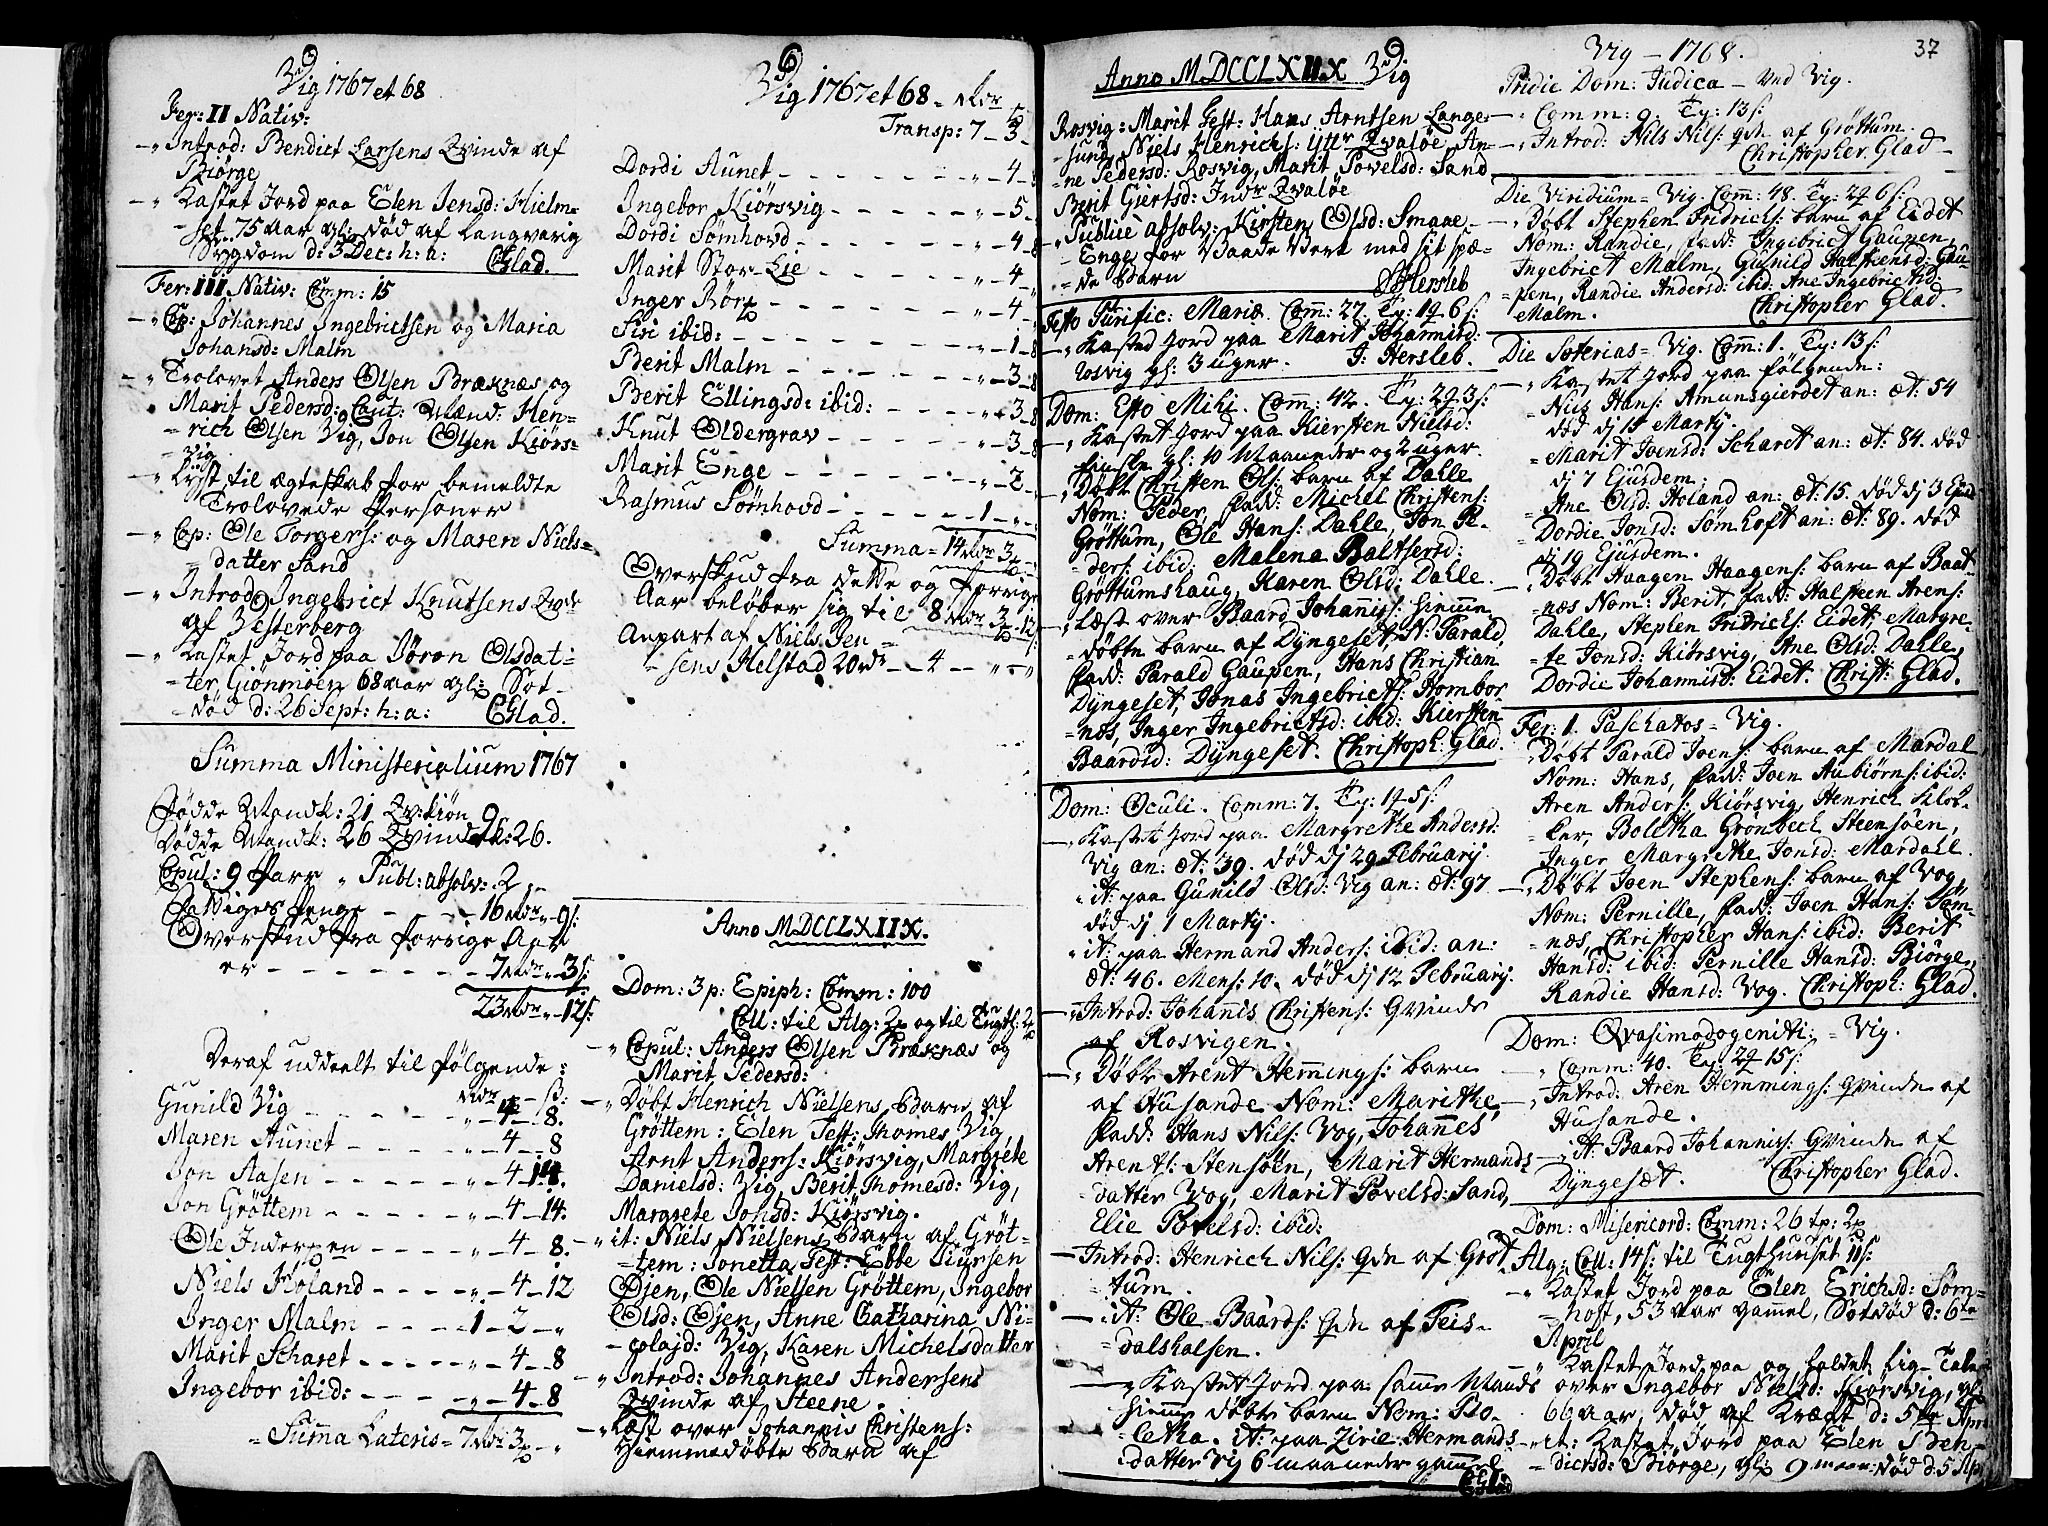 Vig 1767 et 68
Fer: II Nativ:
Introd: Bendict Larsens Qvinde af
Biørge
Kastet Jord paa Elen Jensd: Hielm=
set 75 aar gl: død af Langvarig
Sygdom d: 3 Dec: h: a: CGlad.
Fer: III Nativ: Comm: 15
Cop: Johannes Ingebrictsen og Maria
Johansd: Malm
Trolovet Anders Olsen Bræknæs og
Marit Pedersd: Caut: Mænd: Hen=
=rich Olsen Vig, Jon Olsen Kiørs=
=vig
Lyst til ægteskab for bemeldte
Trolovede Personer
Cop: Ole Torgers: og Maren Niels=
datter Sand
Introd: Ingebrict Knutsens Qvde
af Vesterberg
Kastet Jord paa Jøron Olsdat=
=ter Giønmoen 68 aar gl: Sot
død d: 26 Sept: h: a: CGlad.
Summa Ministerialium 1767
Fødde Mandk: 21 Qv:kiøn 26
Dødde Mandk: 26 Qvindek: 26.
Copul: 9 Parr " Publ: absolv: 2
Fattiges Penge - - - 16 Mdr " 9 s:
Overskud fra forrige Aar
er - - - - - - - 7 Mdr " 3 s:
23 Mdr " 12 s:
Deraf uddeelt til følgende:
Mdr - s:
Gunild Vig - - - - - " - 4 - 8.
Maren Aunet - - - - " - 4 - 8
Jon Aasen - - - - - " - 4 - 14.
Jon Grøttem - - - - " - 4 - 14.
Ole Indergen - - - - " - 4 - 8.
Niels Holand - - - - " - 4 - 12
Inger Malm - - - - 1 - 2 - "
Marit Scharet - - - - " - 4 - 8
Ingebor ibid: - - - - " - 4 - 8
Summa Lateris = 7 Mdr 3 - "
Vig 1767 et 68 - Mdr
Transp: 7 - 3
Dordi Aunet - - - - - " - 4 -
Ingebor Kiørsvig - - - - " - 5 -
Dordi Sømhovd - - - - " - 4 - 8
Marit Stor-Lie - - - - " - 4 -
Inger Børg - - - - - " - 4 -
Siri ibid: - - - - - " - 1 - 8
Berit Malm - - - - " - 3 - 8
Berit Ellingsd: ibid: - - - " - 3 - 8
Knut Oldergrav - - - - " - 3 - 8
Marit Enge - - - - " - 2 -
Rasmus Sømhovd - - - - 1 - " -
Summa = 14 Mdr 3
Overskud fra dette og forrige
Aar beløber sig til 8 Mdr 3 - 12 s:
Anpart af Niels Jen=
=sens Helstad 20 rdr - - 4 - - " - "
Anno MDCCLXIIX.
Dom: 3 p: Epiph: Comm: 100
Coll: til Alg: 2 og til Tugth: 2
Copul: Anders Olsen Bræknæs og
Marit Pedersd:
Døbt Henrich Nielsens Barn af
Grøttem: Elen Test: Thomes Vig,
Arnt Anders: Kiørsvig, Margrete
Danielsd: Vig, Berit Thomesd: Vig,
Margrete Johsd: Kiørsvig.
it: Niels Nielsens Barn af Grøt=
=tem: Jonetta Test: Ebbe Siursen
Øien, Ole Nielsen Grøttem, Ingebor
Olsd: Øien, Anne Catharina Ni=
=colajd: Vig, Karen Michelsdatter
Introd: Johannes Andersens
Qvinde af Steene.
Læst over Johannis Christens:
Hiemmedøbte Barn af
Anno MDCCLXIIX Vig
Rosvig: Marit Test: Hans Arntsen Lange=
=sund, Niels Henrichs: Ytter Qvaløe, An=
=ne Pedersd: Rosvig, Marit Povelsd: Sand
Berit Giertsd: Indr Qvaløe
Publice absolv: Kirsten Olsd: Smaae=
Enge, for Baade Vert med sit spæ=
de Barn JHersleb
Festo Purific: Mariæ. Comm: 27. Tp: 1 6 s:
Kasted Jord paa Marit Johannisd:
Rosvig gl: 3 uger. J: Hersleb.
Dom: Esto Mihi. Comm: 42. Tp: 2 3 s:
Kastet Jord paa Kiersten Nielsd:
gl: 10 Maaneder og 2 uger
Døbt Christen Ols: barn af Dahle
Nom: Peder, Fadd: Michel Christens:
Grøttum, Ole Hans: Dahle, Jon Pe=
=ders: ibid: Malena Baltsersd:
Grøttumshaug, Karen Olsd: Dahle.
Læst over Baard Johannis: Hiemme
døbte barn af Dyngeset, N: Parald,
Fadd: Parald Gaupen, Hans Christian
Dyngeset, Jonas Ingebricts: Hombor
=næs, Inger Ingebrictsd: ibid: Kiersten
Baardsd: Dyngeset. Christoph: Glad.
Dom: Oculi. Comm: 7. Tp: 1 5 s:
Kastet Jord paa Margrethe Andersd:
Vig an: æt: 39. død dj 29 Februarij.
it: paa Gunild Olsd: Vig an: æt: 97
død dj 1 Martij.
it: paa Hermand Anders: ibid: an:
æt: 46. Mens: 10. død dj 12 Februarij.
Introd: Johanis Christens: Qvinde
af Rosvigen.
Døbt Arent Hemmings: barn
af Husande Nom: Marithe,
Fadd: Hans Nils: Vog, Johannes
Arents: Stensøen, Marit Hermands
datter Vog, Marit Povelsd: Sand,
Elie Povelsd: ibid:
Introd: Henrich Nils: Qde af Grøt
tum.
it: Ole Baards: Qde af Teis=
=dalshalsen.
Kastet Jord paa samme Mands
hiemme døbte barn Nom: Bo=
letha. it: paa Zirie Hermands
datter Vig 6 maaneder gammel
Vig - 1768. 37
Pridie Dom: Judica - ved Vig.
Comm: 9. Tp: 13 s:
Introd: Nils Nils: qde af Grøttum.
Christopher Glad
Die Viridium = Vig. Comm: 48. Tp: 2 6 s:
Døbt Stephen Fridrichs: barn af Eidet
Nom: Randie, Fadd: Ingebrict Gaupen,
Ingebrict Malm, Gunild Halstensd: Gau=
=pen, Randie Andersd: ibid: Ane Ingebrictsd:
Malm. Christopher Glad.
Die Soterias = Vig. Comm: 1. Tp: 13 s:
Kastet Jord paa følgende:
Nils Hans: Amunsgierdet an: æt: 54
død dj 15 Martij.
Marit Joensd: Scharet an: æt: 84. død
dj 7 Ejusdem.
Ane Olsd: Holand an: æt: 15. død dj 3 Ejusd
Dordie Jonsd: Sømhoft an: æt: 89. død
dj 19 Ejusdem.
Døbt Haagen Haagens: barn af Baat
næs Nom: Berit, Fadd: Halsteen Arens:
Dahle, Stephen Fridrichs: Eidet, Margre=
=te Jonsd: Kiørsvig, Ane Olsd: Dahle,
Dordie Johannisd: Eidet. Christ: Glad.
Fer: 1. Paschatos = Vig.
Døbt Parald Joens: barn af Mardal
Nom: Hans, Fadd: Joen Aubiørns: ibid:
Aren Anders: Kiørsvig, Henrich Klok=
=ker, Boletha Grønbech Steensøen,
Inger Margrethe Jonsd: Mardahl.
Døbt Joen Stephens: barn af Vog,
Nom: Pernille, Fadd: Joen Hans: Søm=
=næs, Christopher Hans: ibid: Berit
Hansd: ibid: Pernille Hansd: Biørge,
Randie Hansd: Vog. Christoph: Glad.
Dom: Qvasimodogeniti: = Vig.
Comm: 40. Tp: 2 15 s:
Introd: Aren Hemmings: Qvinde af
Husande.
it: Baard Johannis: Qvinde af
Dyngesæt. Christopher Glad.
Dom: Misericord: Comm: 26 tp: 2
Alg: Coll: 14 s: til Tugthuuset 11 s:
Kastet Jord paa Elen Erichsd: Søm=
=hoft, 53 aar gammel, Sotdød d: 6te
April
Kastet Jord paa og holdet Lig-Tale
over Ingebor Nielsd: Kiørsvig, gl:
66 aar, død af Kræft d: 5te Apr
it: Kastet Jord paa Elen Ben=
=dictsd: Biørge, gl: 9 maan: død d: 5 Ap